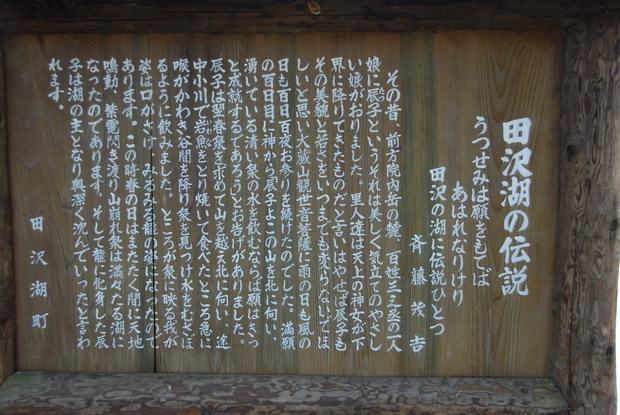 田沢湖の伝説
うつせみは願をもてば
あはれなりけり
田沢の湖に伝説ひとつ
斉藤茂吉
その昔、前方院内岳の麓、百姓三之丞の一人
娘に辰子というそれは美しく気立てのやさし
い娘がおりました。里人達は天上の神女が下
界に降りてきたものだと言いはやせば辰子も
その美貌と若さをいつまでも承らないでほ
しいと思い大蔵山観世音菩薩に雨の日も風の
日も百日百夜お参りを続けたのでした。満願
の百日目に神から辰子よこの山を北に向い、
湧いている清い泉の水を飲むならば願はきっ
と成就するであろうとお告げがありました。
辰子は翌春泉を求めて山を越え北に向い、途
中小川で岩魚をとり焼いて食べたところ急に
喉がかわき谷間を降り泉を見つけ水をむさぼ
るように飲みました。ところが泉に映る我が
姿は口がさけ、みるみる龍の姿になったので
あります。この時春の日はまたたく間に天地
鳴動、紫電閃き渡り山崩れ泉は満々たる湖に
なったのであります。そして龍に化身した辰
子は湖の主となり奥深く沈んでいったと言わ
れます。
田沢湖町